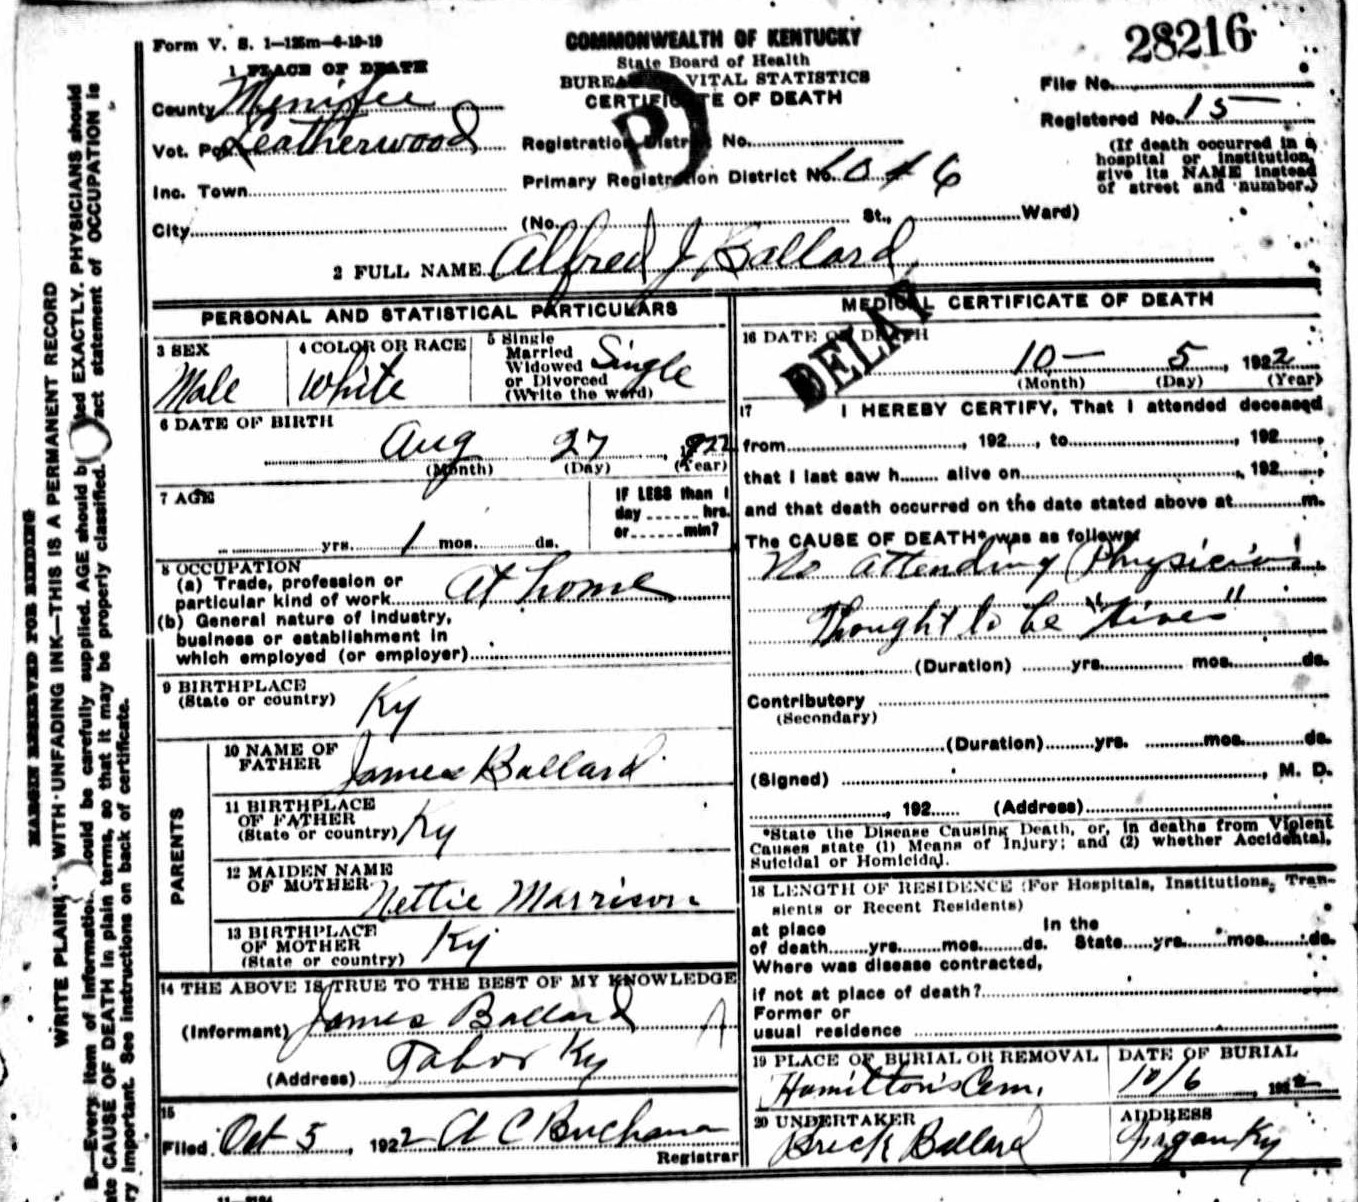 28216
Form V. S. 1—125m—6-19-19
COMMONWEALTH OF KENTUCKY
State Board of Health
BUREAU VITAL STATISTICS
CERTIFICATE OF DEATH
File No.
Registered No. 15
(If death occurred in a hospital or institution, give its NAME instead of street and number.)
1 PLACE OF DEATH
County Menifee
Vot. Pct. Leatherwood
Inc. Town
City
Registration District No.
Primary Registration District No.
(No. St., Ward)
D
2 FULL NAME Alfred J Ballard
PERSONAL AND STATISTICAL PARTICULARS
3 SEX
Male
4 COLOR OR RACE
White
5 Single
Married
Widowed
or Divorced
(Write the word)
Single
6 DATE OF BIRTH
Aug 27, 1922
(Month) (Day) (Year)
7 AGE
yrs. 1 mos. ds.
IF LESS than 1
day hrs.
or min?
8 OCCUPATION
(a) Trade, profession or
particular kind of work At home
(b) General nature of industry,
business or establishment in
which employed (or employer)
9 BIRTHPLACE
(State or country) Ky
PARENTS
10 NAME OF
FATHER James Ballard
11 BIRTHPLACE
OF FATHER
(State or country) Ky
12 MAIDEN NAME
OF MOTHER Nettie Marrison
13 BIRTHPLACE
OF MOTHER
(State or country) Ky
14 THE ABOVE IS TRUE TO THE BEST OF MY KNOWLEDGE
(Informant) James Ballard
(Address) Tabor Ky
15
Filed Oct 5, 1922 A C Buchana
Registrar
MEDICAL CERTIFICATE OF DEATH
DELAY
16 DATE OF DEATH
10— 5, 1922
(Month) (Day) (Year)
17 I HEREBY CERTIFY, That I attended deceased
from , 192 , to , 192 ,
that I last saw h alive on , 192 ,
and that death occurred on the date stated above at m.
The CAUSE OF DEATH* was as follows:
No attending Physician.
Thought to be "hives"
(Duration) yrs. mos. ds.
Contributory
(Secondary)
(Duration) yrs. mos. ds.
(Signed) , M. D.
, 192 (Address)
*State the Disease Causing Death, or, in deaths from Violent
Causes state (1) Means of Injury; and (2) whether Accidental,
Suicidal or Homicidal.
18 LENGTH OF RESIDENCE (For Hospitals, Institutions, Tran-
sients or Recent Residents)
at place In the
of death yrs. mos. ds. State yrs. mos. ds.
Where was disease contracted,
if not at place of death?
Former or
usual residence
19 PLACE OF BURIAL OR REMOVAL
Hamilton's Cem.
DATE OF BURIAL
10/6, 1922
20 UNDERTAKER
Breck Ballard
ADDRESS
Ky
MARGIN RESERVED FOR BINDING
WRITE PLAINLY WITH UNFADING INK—THIS IS A PERMANENT RECORD
B.—Every item of information should be carefully supplied. AGE should be stated EXACTLY. PHYSICIANS should
state CAUSE OF DEATH in plain terms, so that it may be properly classified. Exact statement of OCCUPATION is
very important. See instructions on back of certificate.